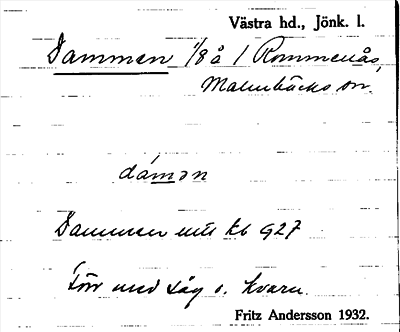 Västra hd., Jönk. l.
Dammen 1/8 å 1 Rommenås,
Malmbäcks sn.
dámǝn
Dammen mtl kb 927
Förr med såg o. kvarn.
Fritz Andersson 1932.